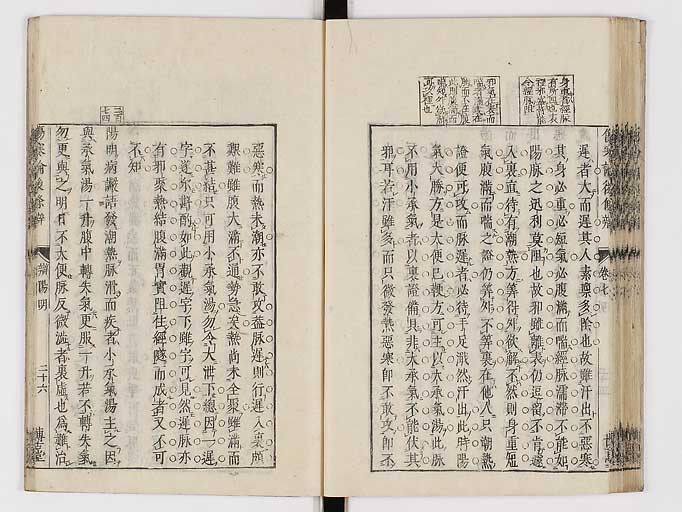 身重為經脈
有所阻也表
裡邪盛皆能
令經脈阻
邪氣在表而
喘者滿或在
胸而不在腹
此則腹滿而
喘知外欲解
卷七
遲者大而遲其人素稟多陰也故雖汗出不惡寒
其身必重必短氣必腹滿而喘經脈濡滯不能如
陽脈之迅利莫阻也故邪雖離表仍逗留不肯遽
入裏直待有潮熱方算得外欲解不然則身重短
氣腹滿而喘之證仍算外不算裏在他人只潮熱
證便可攻而脈遲者必待手足濈然汗出此時陽
氣大勝方是大便已鞕方可主以大承氣湯此脈
不用小承氣者以裏證備具非大承氣不能伏其
邪耳若汗雖多而只微發熱惡寒即不敢攻即不
惡寒而熱未潮亦不敢攻蓋脈遲則行遲入裏頗
艱難雖腹大滿不通勢急矣熱尚未全聚雖滿而
不甚結只可用小承氣湯勿令大泄下總因一遲
字遂爾斟酌如此觀遲字下雖字可見然遲脈亦
有邪聚熱結腹滿胃實阻住經隧而成者又不可
不知
二百
七四
陽明病讝語發潮熱脈滑而疾者小承氣湯主之因
與承氣湯一升腹中轉失氣更服一升若不轉失氣
勿更與之明日不大便脈反微澀者裏虛也為難治
辨陽明
二十六